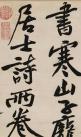 書寒山子龐
居士詩兩卷